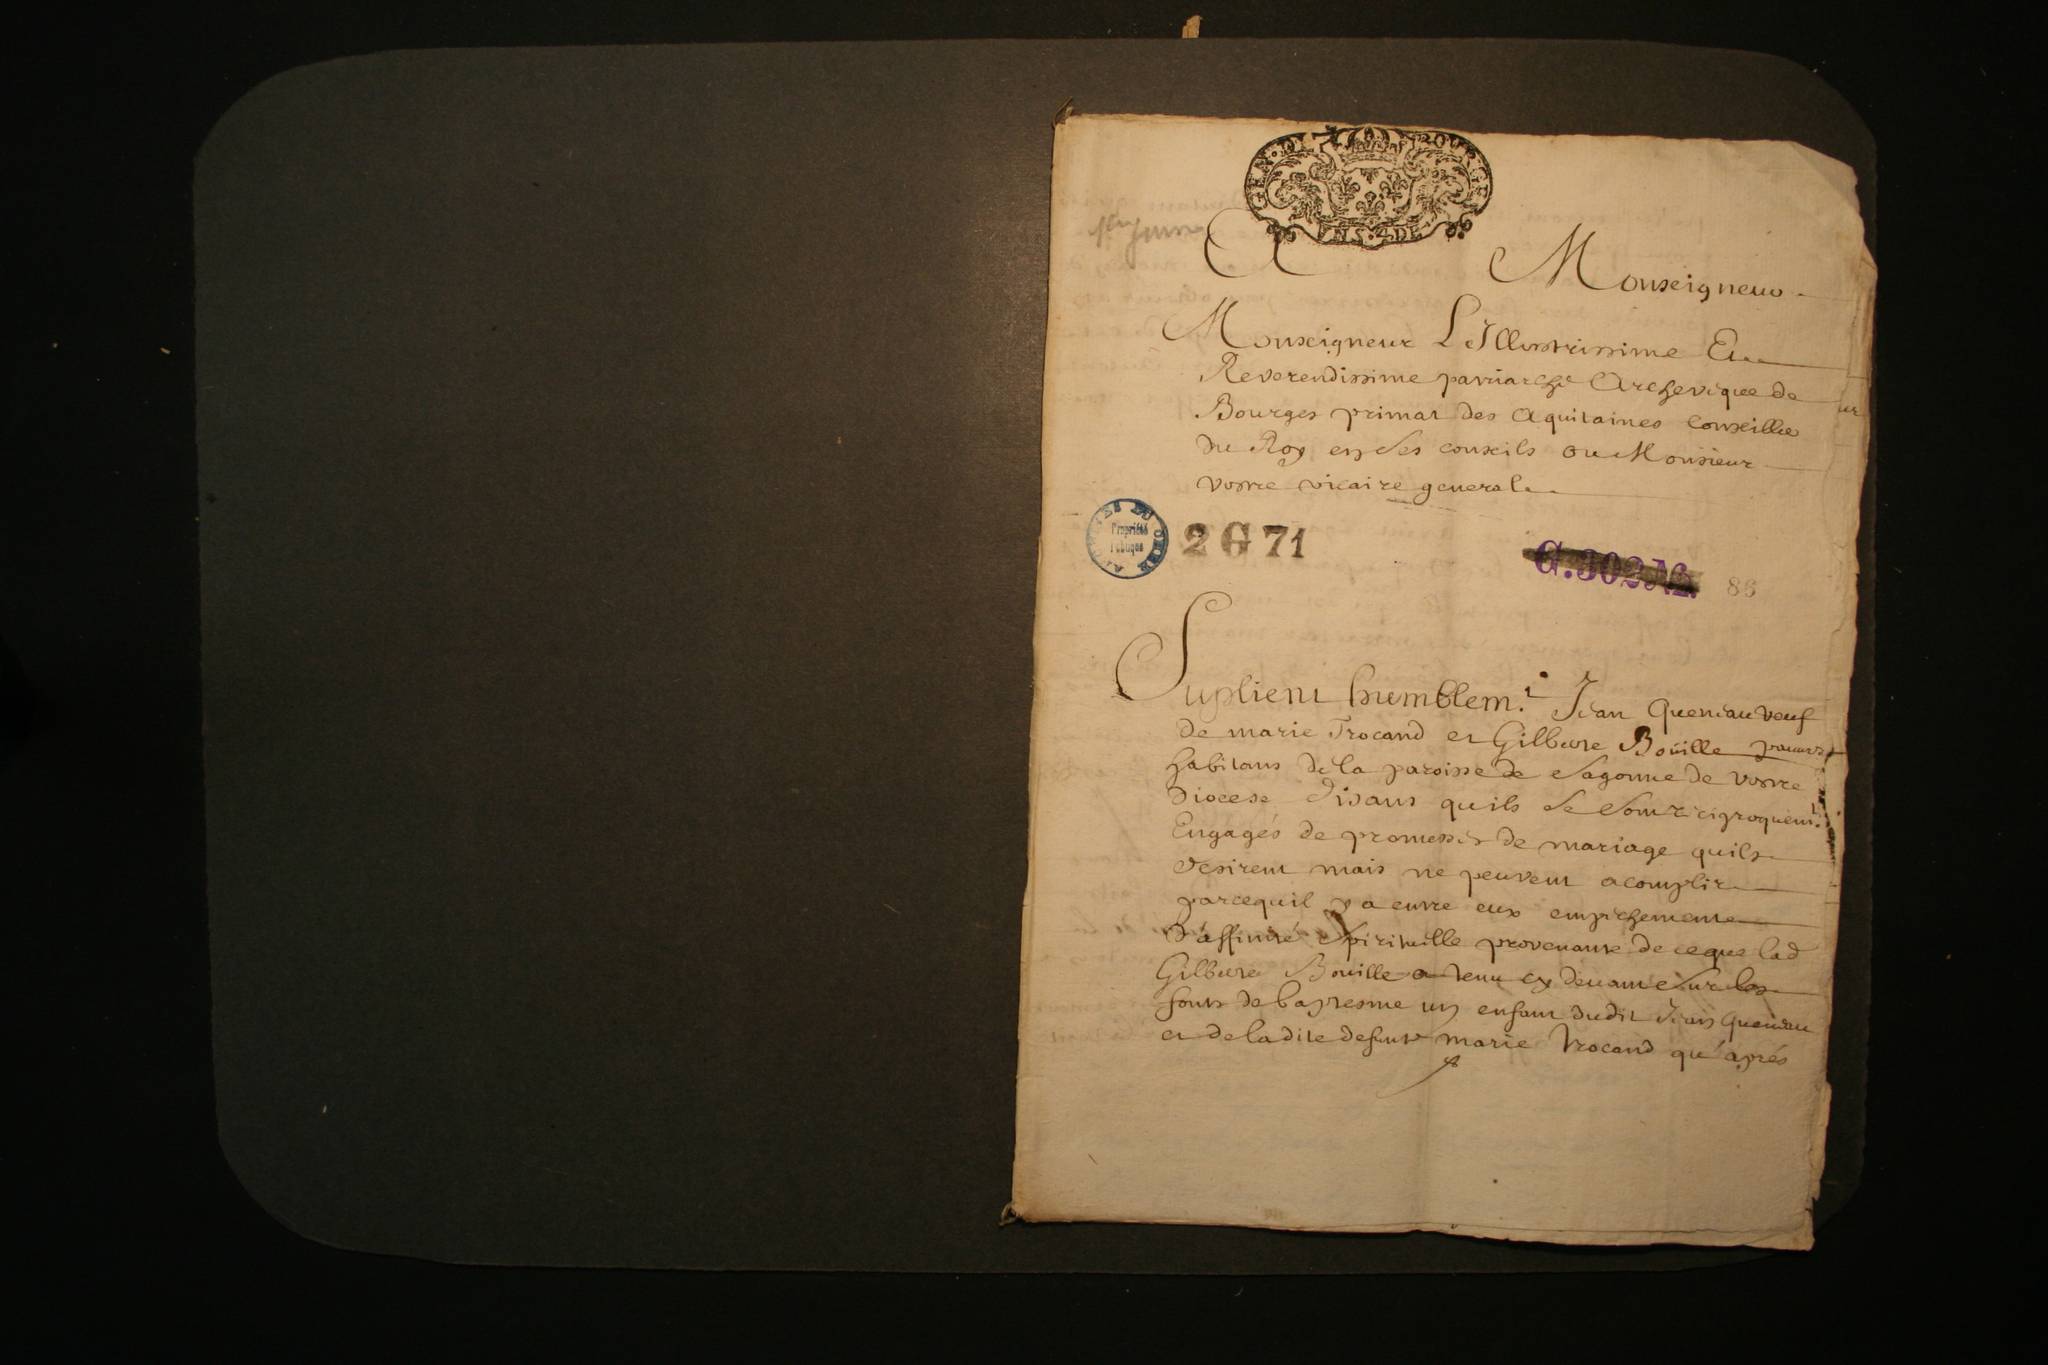 GEN. DE BOURGE
UN S. 4 DE
A Monseigneur
Monseigneur L'Illustrissime Et
Reverendissime patriarche Archeveque de
Bourges primat des Aquitaines Conseiller
du Roy en ses conseils ou Monsieur
vostre vicaire general
ARCHIVES DU CHER
Propriété
Publique
2 G 71
G.302
86
Suplient humblem.t Jean Queneau veuf
de marie Trocand et Gilberte Boüille pauvres
habitans de la paroisse de Sagonne de vostre
Diocese disans quils se sont reciproquem.t
Engagés de promesses de mariage quils
desirent mais ne peuvent acomplir
parcequil y a entre eux empechement
D'affinité Spirituelle provenante de ceque lad
Gilberte Bouille a tenu cy devant sur les
fonts de baptesme un enfant dudit Jean Queneau
et de ladite defunte marie Trocand qu'aprés